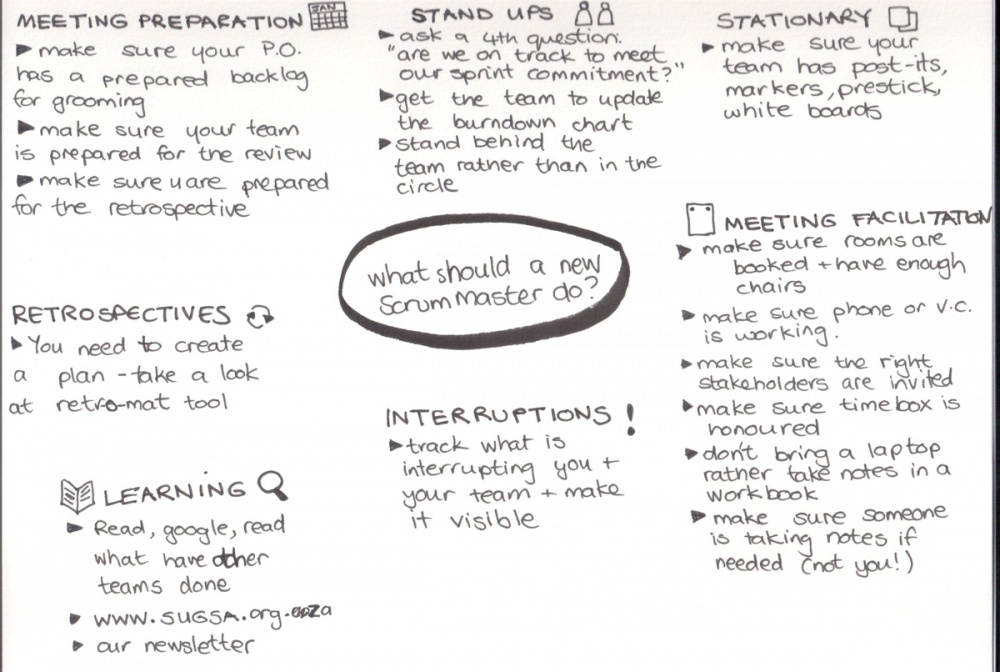 MEETING PREPARATION JAN
make sure your P.O.
has a prepared backlog
for grooming
make sure your team
is prepared for the review
make sure u are prepared
for the retrospective
STAND UPS
ask a 4th question.
"are we on track to meet
our sprint commitment?"
get the team to update
the burndown chart
stand behind the
team rather than in the
circle
STATIONARY
make sure your
team has post-its,
markers, prestick,
white boards
what should a new
Scrum Master do?
MEETING FACILITATION
make sure rooms are
booked + have enough
chairs
make sure phone or v.c.
is working.
make sure the right
stakeholders are invited
make sure timebox is
honoured
don't bring a laptop
rather take notes in a
workbook
make sure someone
is taking notes if
needed (not you!)
RETROSPECTIVES
You need to create
a plan - take a look
at retro-mat tool
INTERRUPTIONS !
track what is
interrupting you +
your team + make
it visible
LEARNING
Read, google, read
what have other
teams done
www.SUGSA.org.za
our newsletter